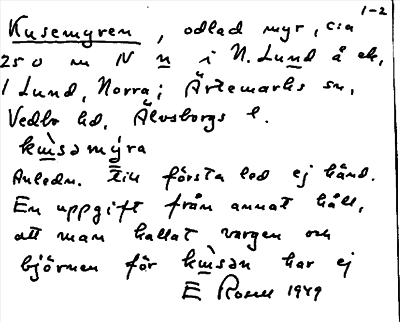 1-2
Kusemyren, odlad myr, c:a
250 m N n i N. Lund å ek,
1 Lund, Norra; Ärtemarks sn,
Vedbo hd, Älvsborgs l.
kɯ̀səmýra
Anledn. till första led ej känd.
En uppgift från annat håll,
att man kallat vargen och
björnen för kɯ̀sən har ej
E Rosell 1949